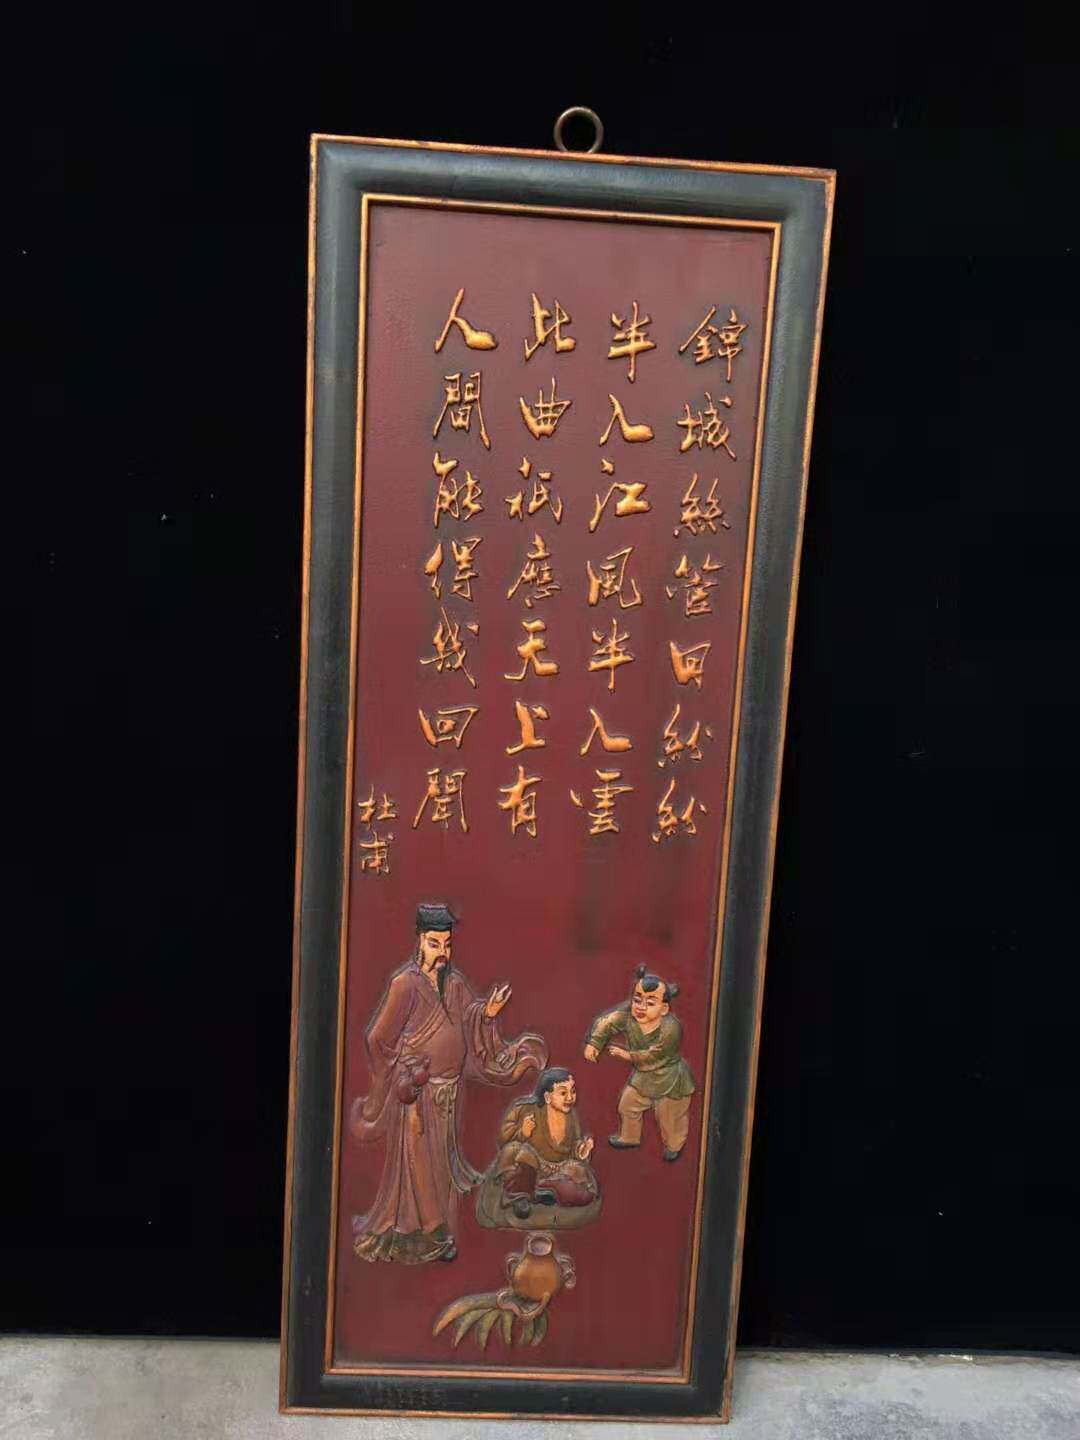 錦城絲管日紛紛
半入江風半入雲
此曲祇應天上有
人間能得幾回聞
杜甫